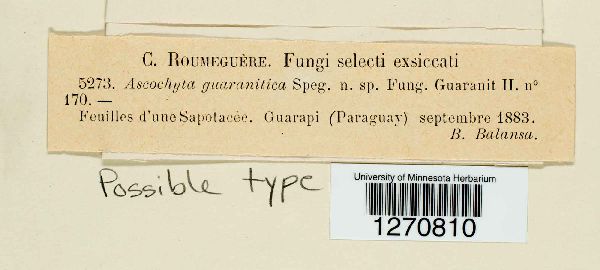 C. ROUMEGUÈRE. Fungi selecti exsiccati
5273. Ascochyta guaranitica Speg. n. sp. Fung. Guaranit II. nº
170. —
Feuilles d'une Sapotacée. Guarapi (Paraguay) septembre 1883.
B. Balansa.
Possible type
University of Minnesota Herbarium
1270810